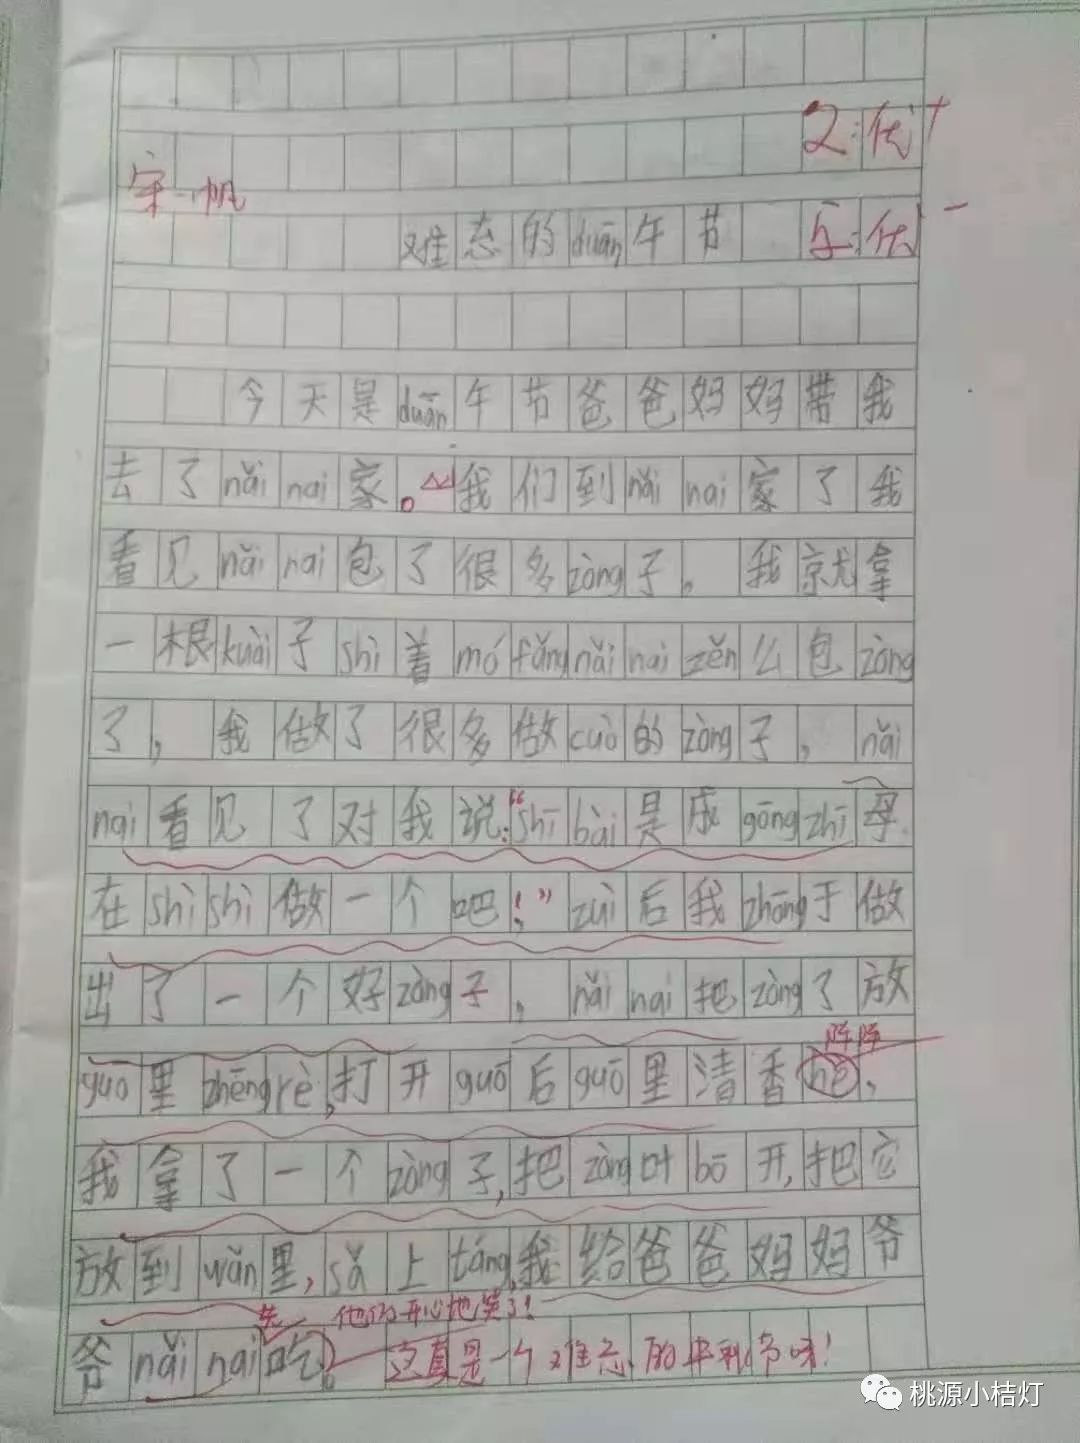 2:优+
宋一帆
难忘的duān午节 与:优-
今天是duān午节爸爸妈妈带我
去了nǎinai家。我们到nǎinai家了我
看见nǎinai包了很多zòng子。我就拿
一根kuài子shì着mófǎngnǎinaizěn么包zòng
了，我做了很多做cuò的zòng子，nǎi
nai看见了对我说:“shībài是成gōngzhī母
在shìshì做一个吧!”zuì后我zhōng于做
出了一个好zòng子，nǎinai把zòng了放
guō里zhēngrè,打开guō后guō里清香 阵阵，
我拿了一个zòng子,把zòng叶bō开,把它
放到wǎn里,sǎ上táng,我给爸爸妈妈爷
先 他们开心地笑了!
爷nǎinai吃。这真是一个难忘的端午节呀!
桃源小桔灯